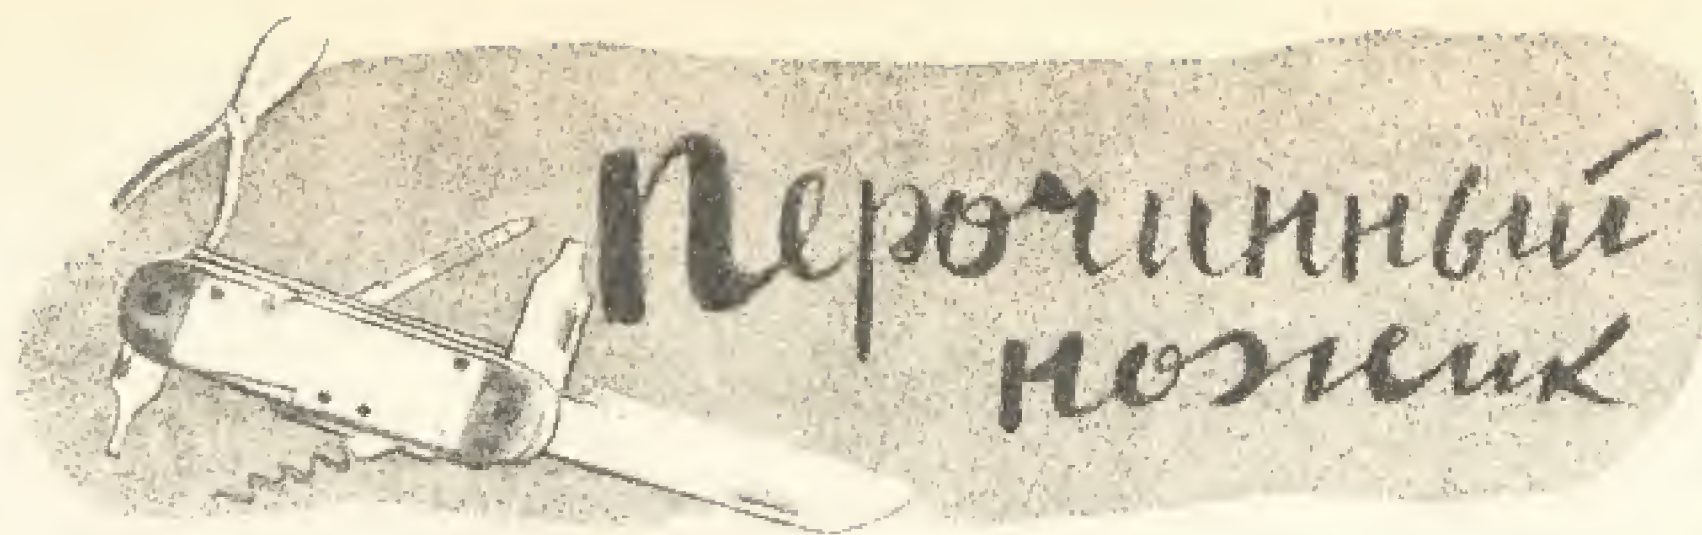 Перочинный
ножик